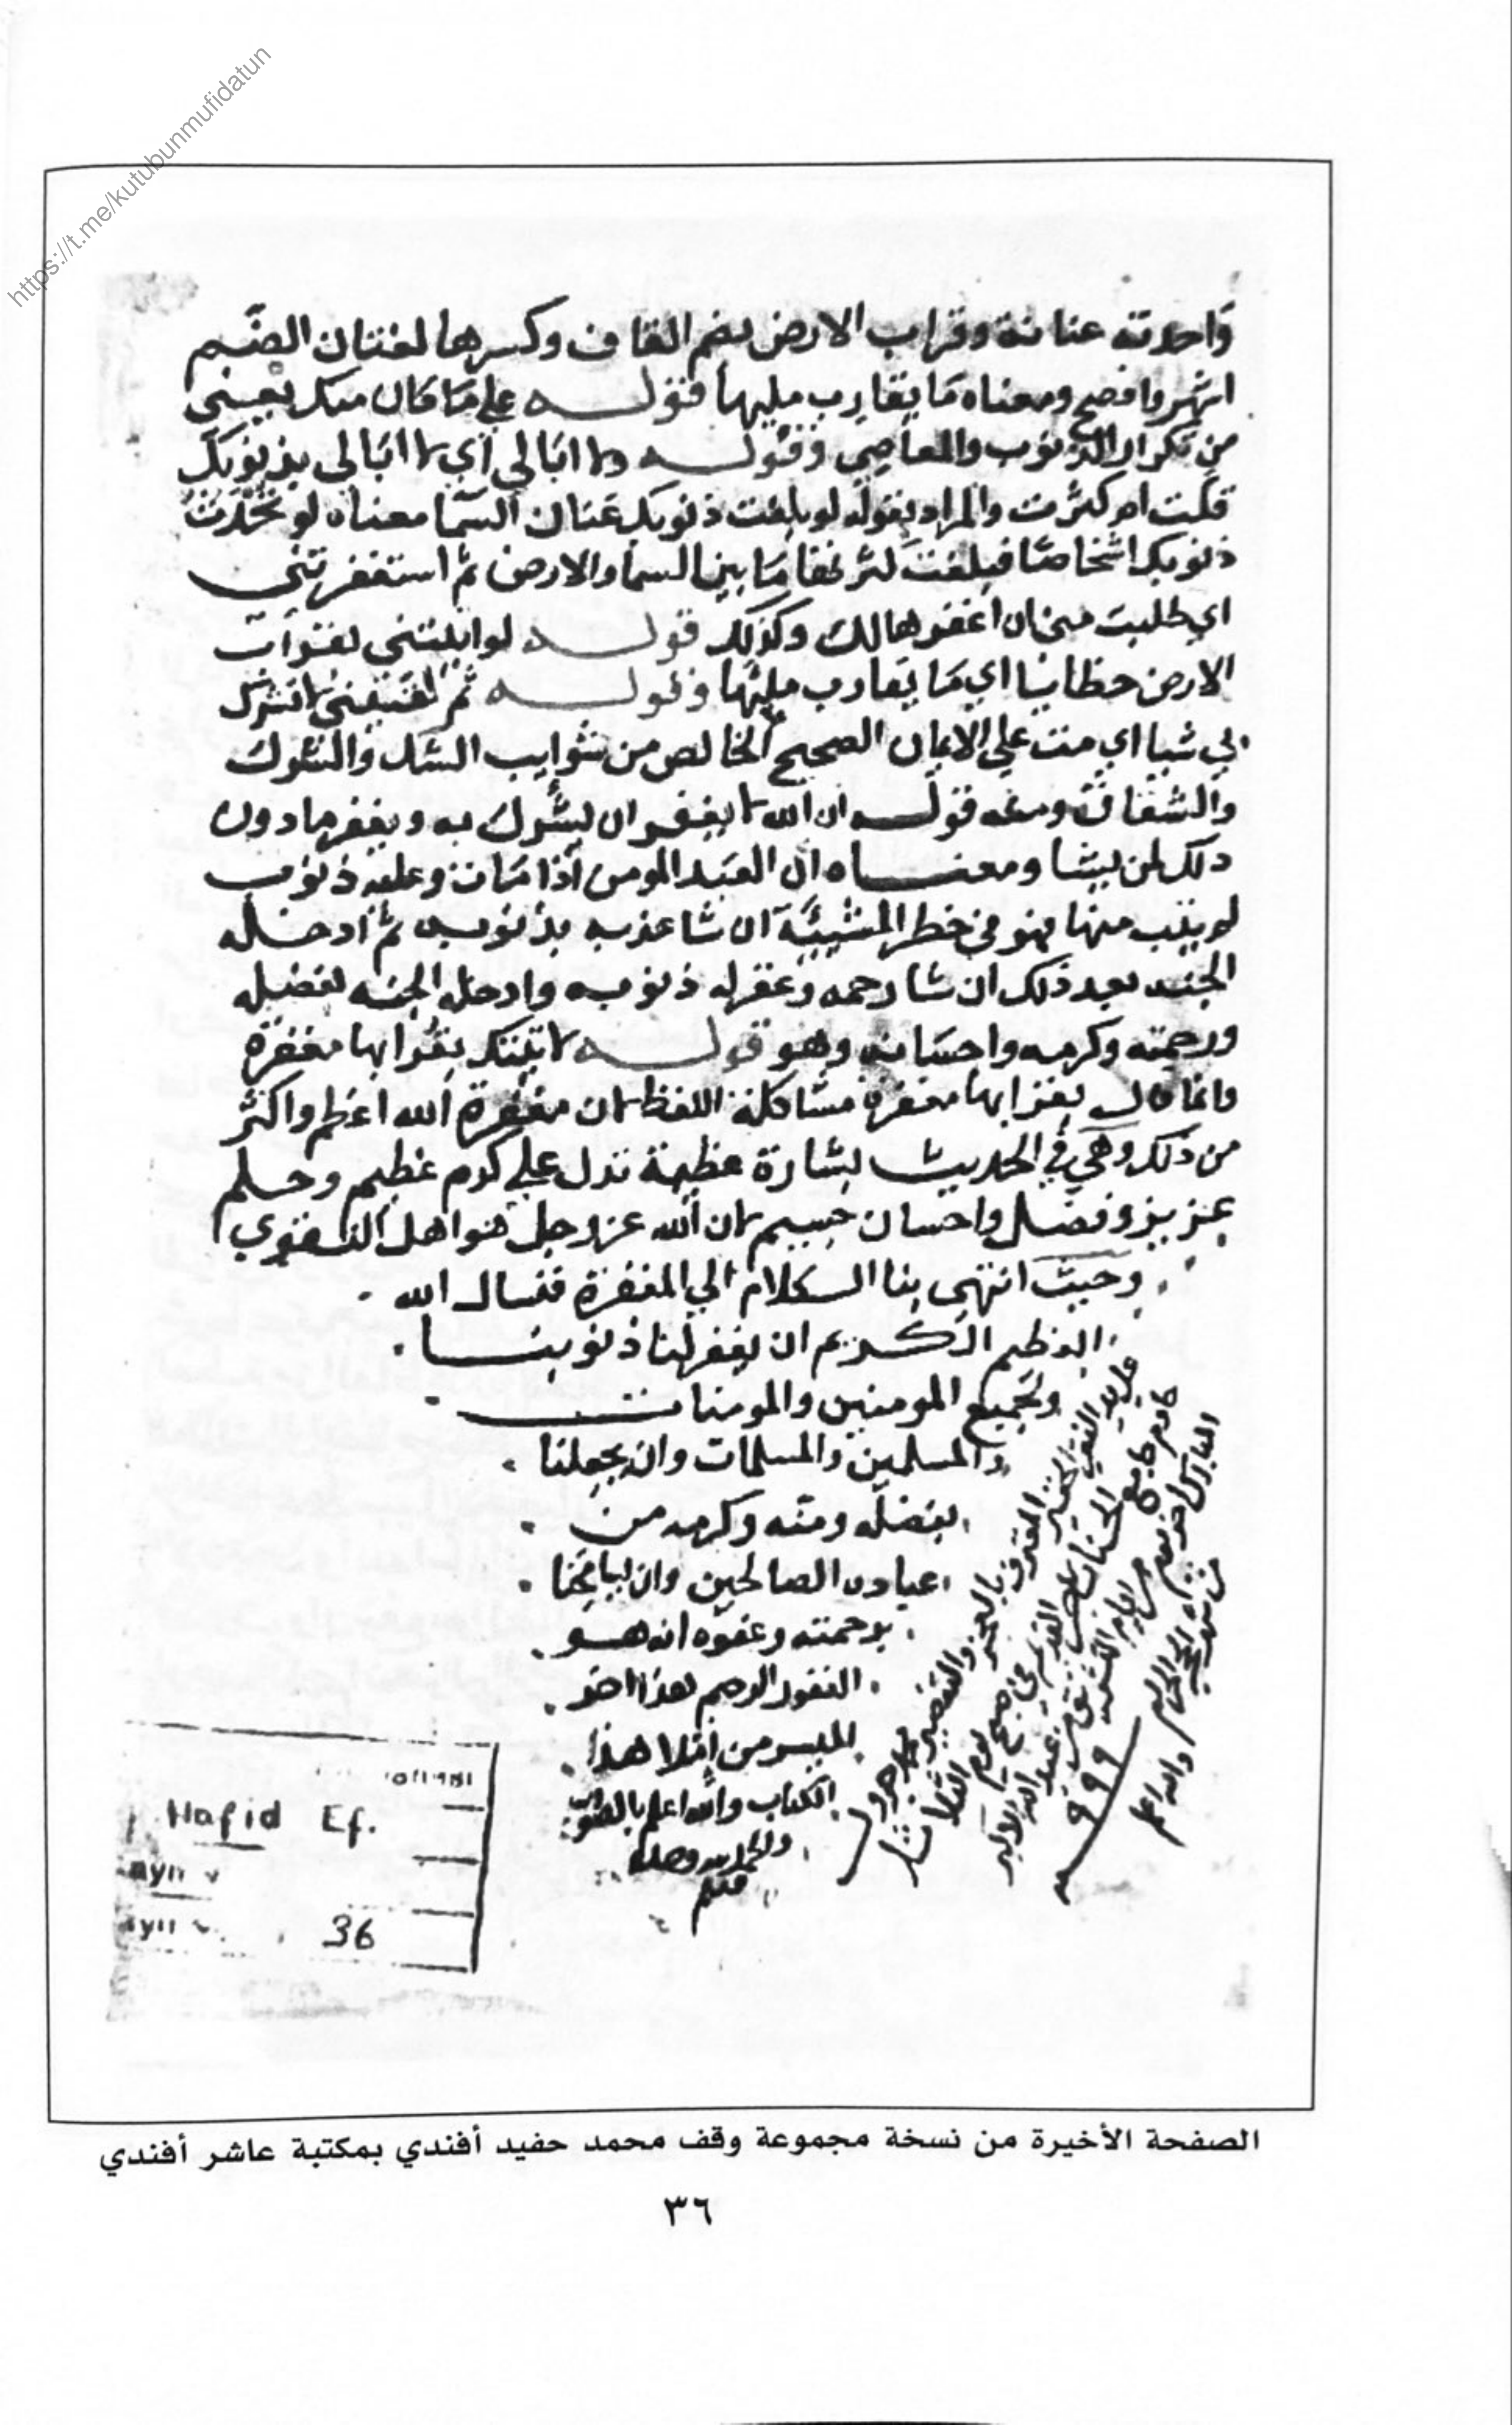 https://t.me/kutubunmufidatun
واحدته عنانة وقراب الارض بضم القاف وكسرها لغتان الضم
اشهر وافصح ومعناه ما يقارب مليها قوله على ما كان منك يعني
من تكرار الذنوب والمعاصي وقوله ولا ابالي اي لا ابالي بذنوبك
قلت او كثرت والمراد بقوله لو بلغت ذنوبك عنان السما معناه لو
ذنوبك اشخاصا فبلغت ما بين السما والارض ثم استغفرتني
اي طلبت مني ان اغفرها لك وكذلك قوله لو اتيتني بقراب
الارض خطايا اي ما يقارب مليها وقوله ثم لقيتني لا تشرك
بي شيا اي مت على الايمان الصحيح الخالص من شوايب الشك والشرك
والشقاق ومنه قوله ان الله لا يغفر ان يشرك به ويغفر ما دون
ذلك لمن يشا ومعناه ان العبد المومن اذا مات وعليه ذنوب
لم يتب منها فهو في خطر المشيئة ان شا عذبه بذنوبه ثم ادخله
الجنة بعد ذلك ان شا رحمه وغفر له ذنوبه وادخله الجنة بفضله
ورحمته وكرمه واحسانه وهو قوله لاتيتك بقرابها مغفرة
وانما قال بقرابها مغفرة مشاكلة اللفظ لان مغفرة الله اعظم واكثر
من ذلك وهي في الحديث بشارة عظيمة تدل على كرم عظيم وحلم
عزيز وفضل واحسان لان الله عز وجل هو اهل التقوي
وحيث انتهى بنا الكلام الي المغفرة فنسال الله
العظيم الكريم ان يغفر لنا ذنوبنا
ولجميع المومنين والمومنات
والمسلمين والمسلمات وان يجعلنا
بفضله ومنه وكرمه من
عباده الصالحين وان يسامحنا
برحمته وعفوه انه هو
الغفور الرحيم هذا اخر
الميسر من املا هذا
الكتاب والله اعلم بالصواب
والحمد لله وحده
على يد الفقير الحقير
المقترف بالعجز والتقصير
خادم جامع
يوم الثلاثا
٩٩٩
والله اعلم
Hafid Ef.
36
الصفحة الأخيرة من نسخة مجموعة وقف محمد حفيد أفندي بمكتبة عاشر أفندي
٣٦